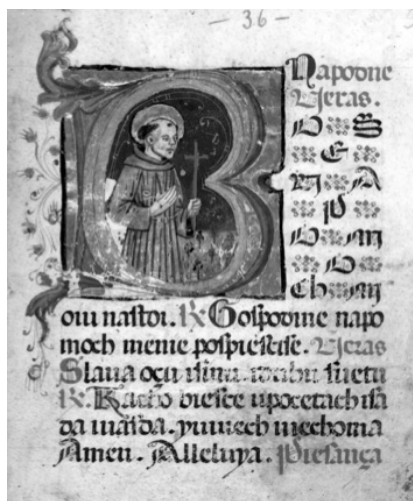 - 36 -
Napodne
Vieras.
O S
E
U A
P
O M
O
Ch M
oiu nastoi. R Gospodine napo
moch mene pospiescise. Vieras
Slava oçu isinu. idahu suetu
R. Kacho biesce upocetach isa
da iuasda. yuuiech uiechoma
Amen. Alleluya. Piesança